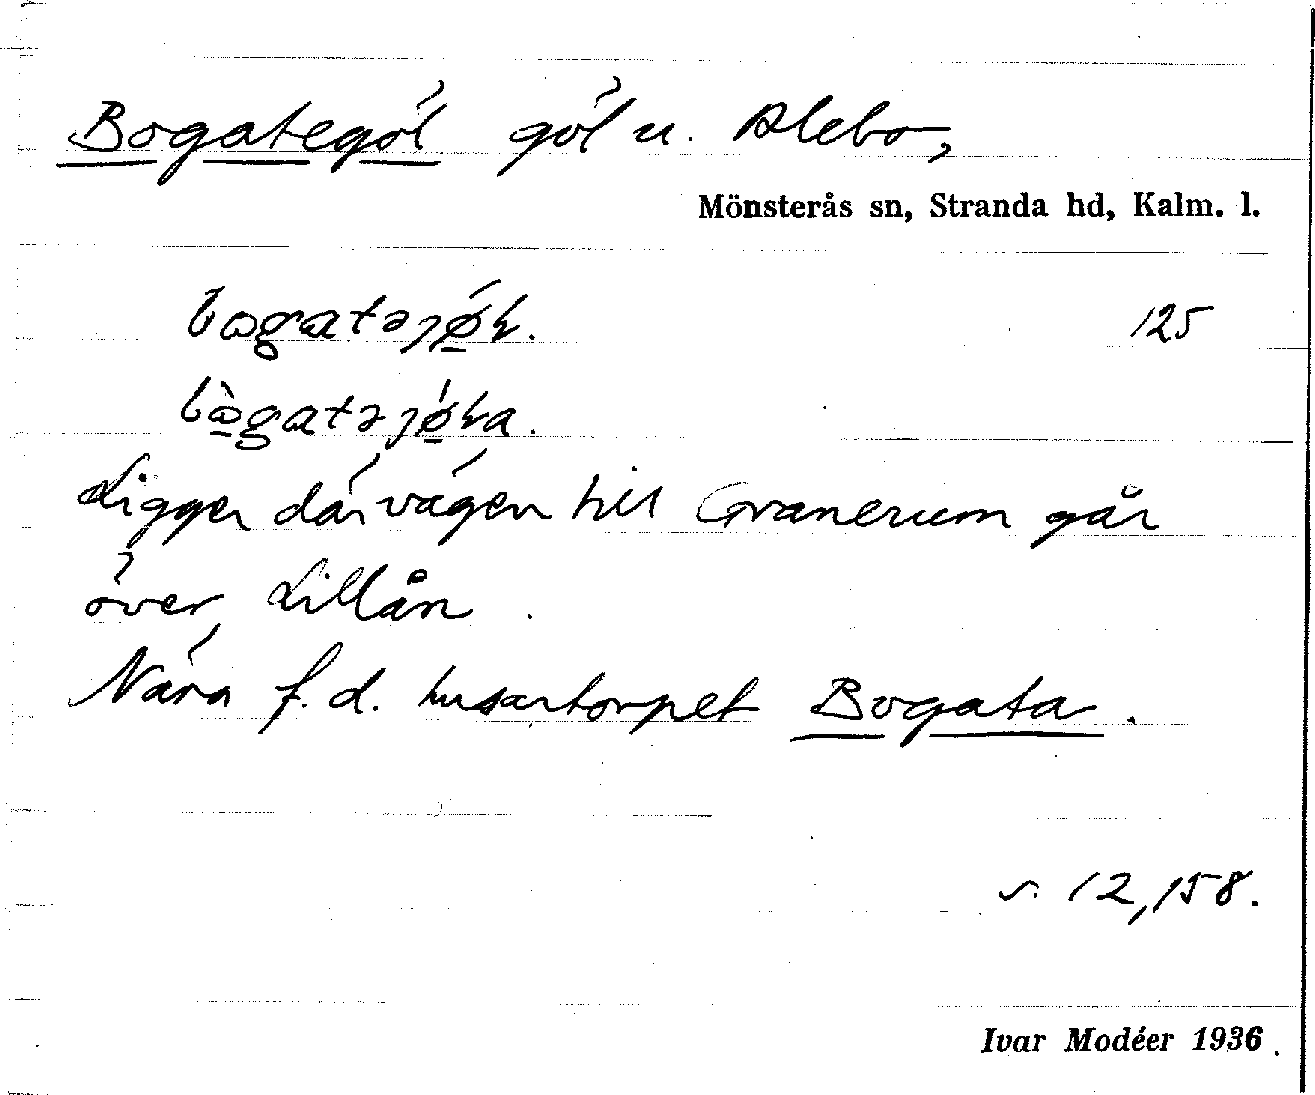 Bogategöl göl u. Alebo,
Mönsterås sn, Stranda hd, Kalm. l.
125
Ligger där vägen till Granerum går
över Lillån.
Nära f.d. husartorpet Bogata.
s. 12, 158.
Ivar Modéer 1936.